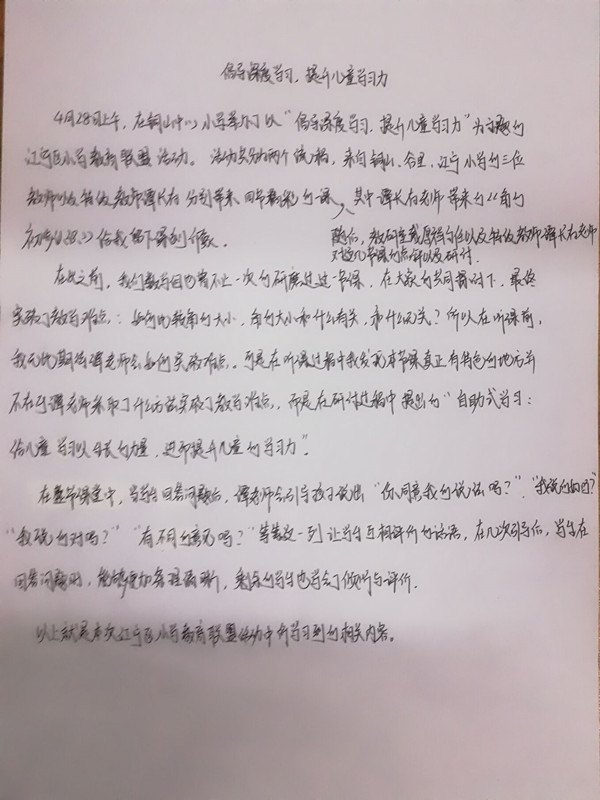 倡导深度学习，提升儿童学习力
4月28日上午，在铜山中心小学举办了以“倡导深度学习，提升儿童学习力”为主题的
江宁区小学教育联盟活动。活动共分为两个流程，来自铜山、谷里、江宁小学的三位
教师以及特级教师谭长存分别带来四节精彩的课，其中谭长存老师带来的《角的
初步认识》给我留下深刻印象。
随后，教研室戚厚祥主任以及特级教师谭长存老师
对这几节课的点评以及研讨。
在此之前，我们数学组也有不止一次的研磨过这一节课，在大家的共同探讨下，最终
突破了教学难点：如何比较角的大小，角的大小和什么有关，和什么无关？所以在听课前，
我无比期待谭老师会如何突破难点。可是在听课过程中我发现本节课真正有特色的地方并
不在于谭老师采取了什么方法突破了教学难点，而是在研讨过程中提出的“自助式学习：
给儿童学习以生长的力量，进而提升儿童的学习力”。
在整节课堂中，当学生回答问题后，谭老师会引导孩子说出“你同意我的说法吗？”、“我说的对吗？”
“我说的对吗？”“有不同意见吗？”等等这一列让学生互相评价的话语，在几次引导后，学生在
回答问题时，能够更加条理清晰，剩余的学生也学会了倾听与评价。
以上就是本次江宁区小学教育联盟活动中所学习到的相关内容。